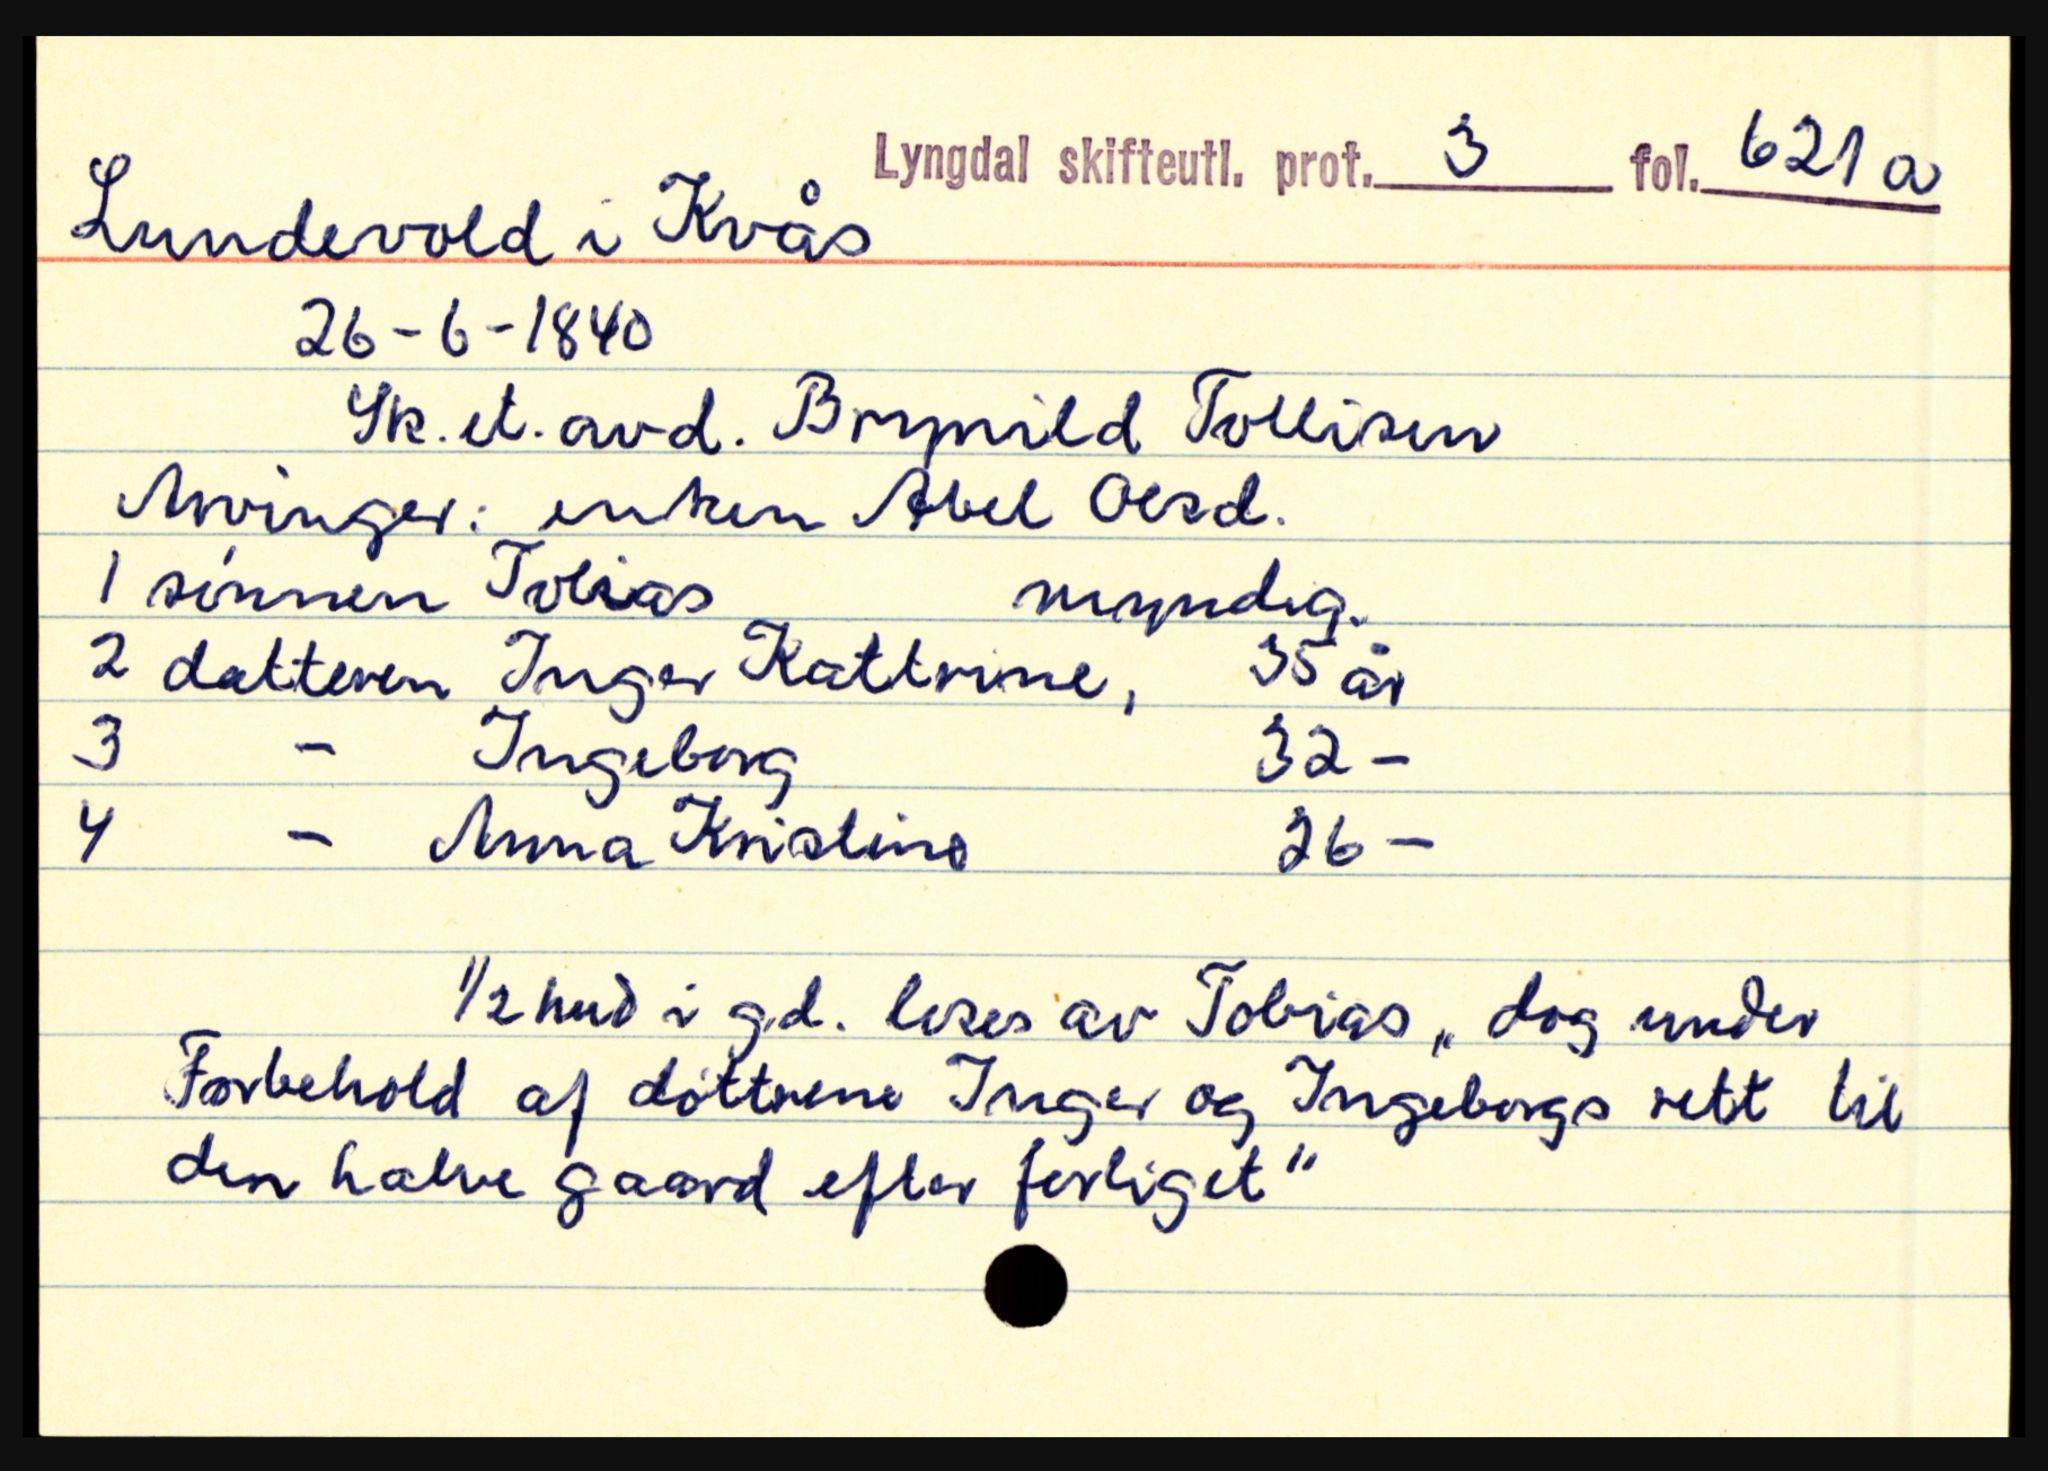 Lyngdal skifteutl. prot. 3 fol. 621 a
Lundevold i Kvås
26-6-1840
Sk. et. avd. Brynild Tollisen
Arvinger: enken Abel Olsd.
1 sønnen Tobias myndig.
2 datteren Inger Kattrine, 35 år
3 - Ingeborg 32 -
4 - Anna Kristine 26 -
1/2 hud i gd. loses av Tobias „ dog under
Forbehold af döttrene Inger og Ingeborgs rett til
den halve gaard efter forliget"